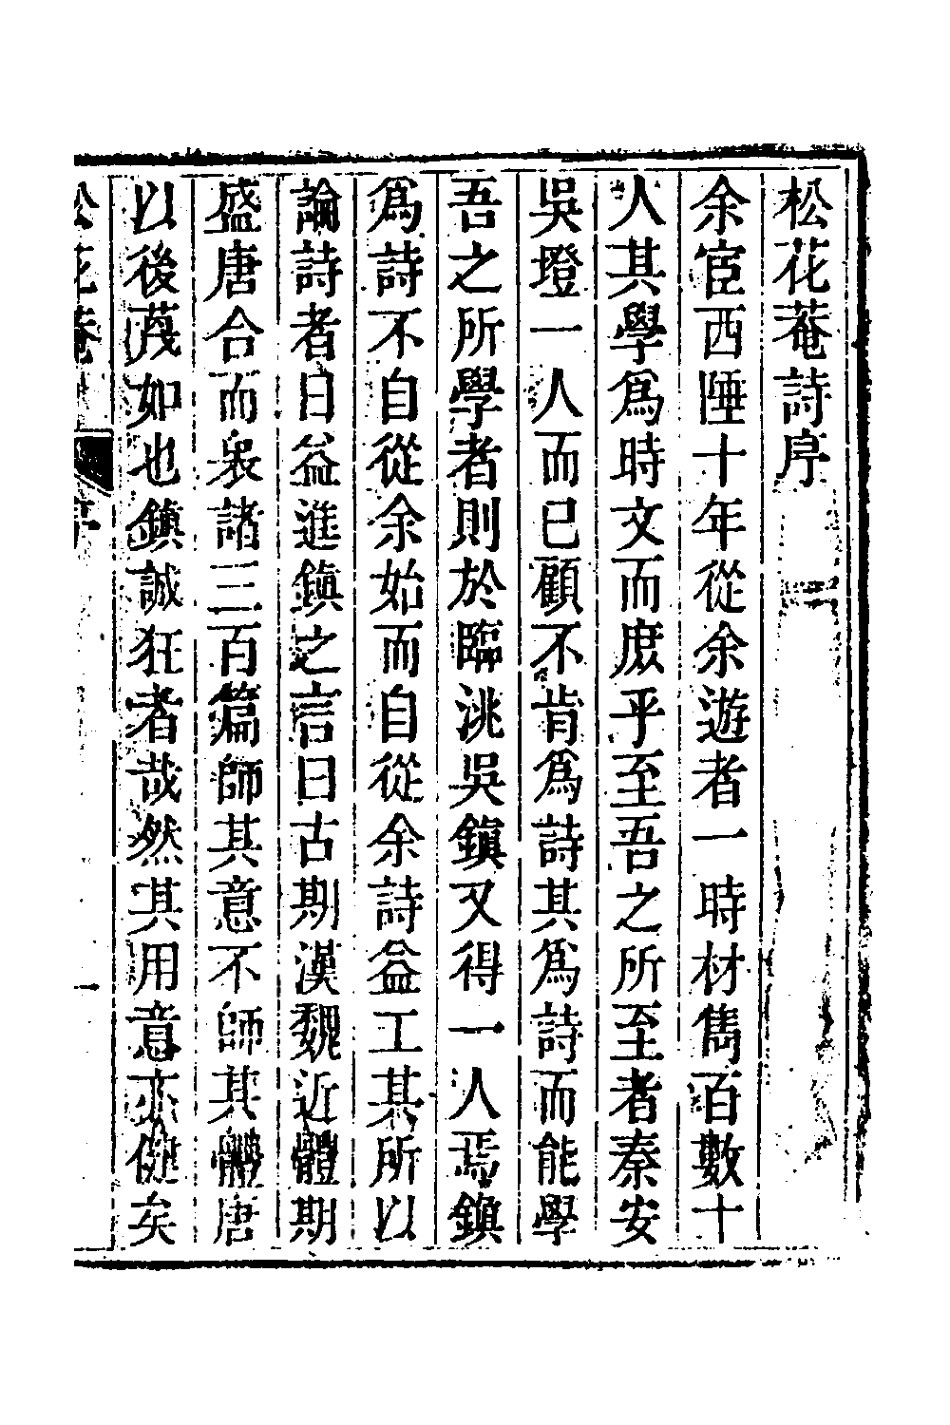 松花菴詩序
余宦西陲十年從余遊者一時材雋百數十
人其學爲時文而庶乎至吾之所至者秦安
吳墱一人而已顧不肯爲詩其爲詩而能學
吾之所學者則於臨洮吳鎮又得一人焉鎮
爲詩不自從余始而自從余詩益工其所以
論詩者日益進鎮之言曰古期漢魏近體期
盛唐合而衆諸三百篇師其意不師其體唐
以後蔑如也鎮誠狂者哉然其用意亦健矣